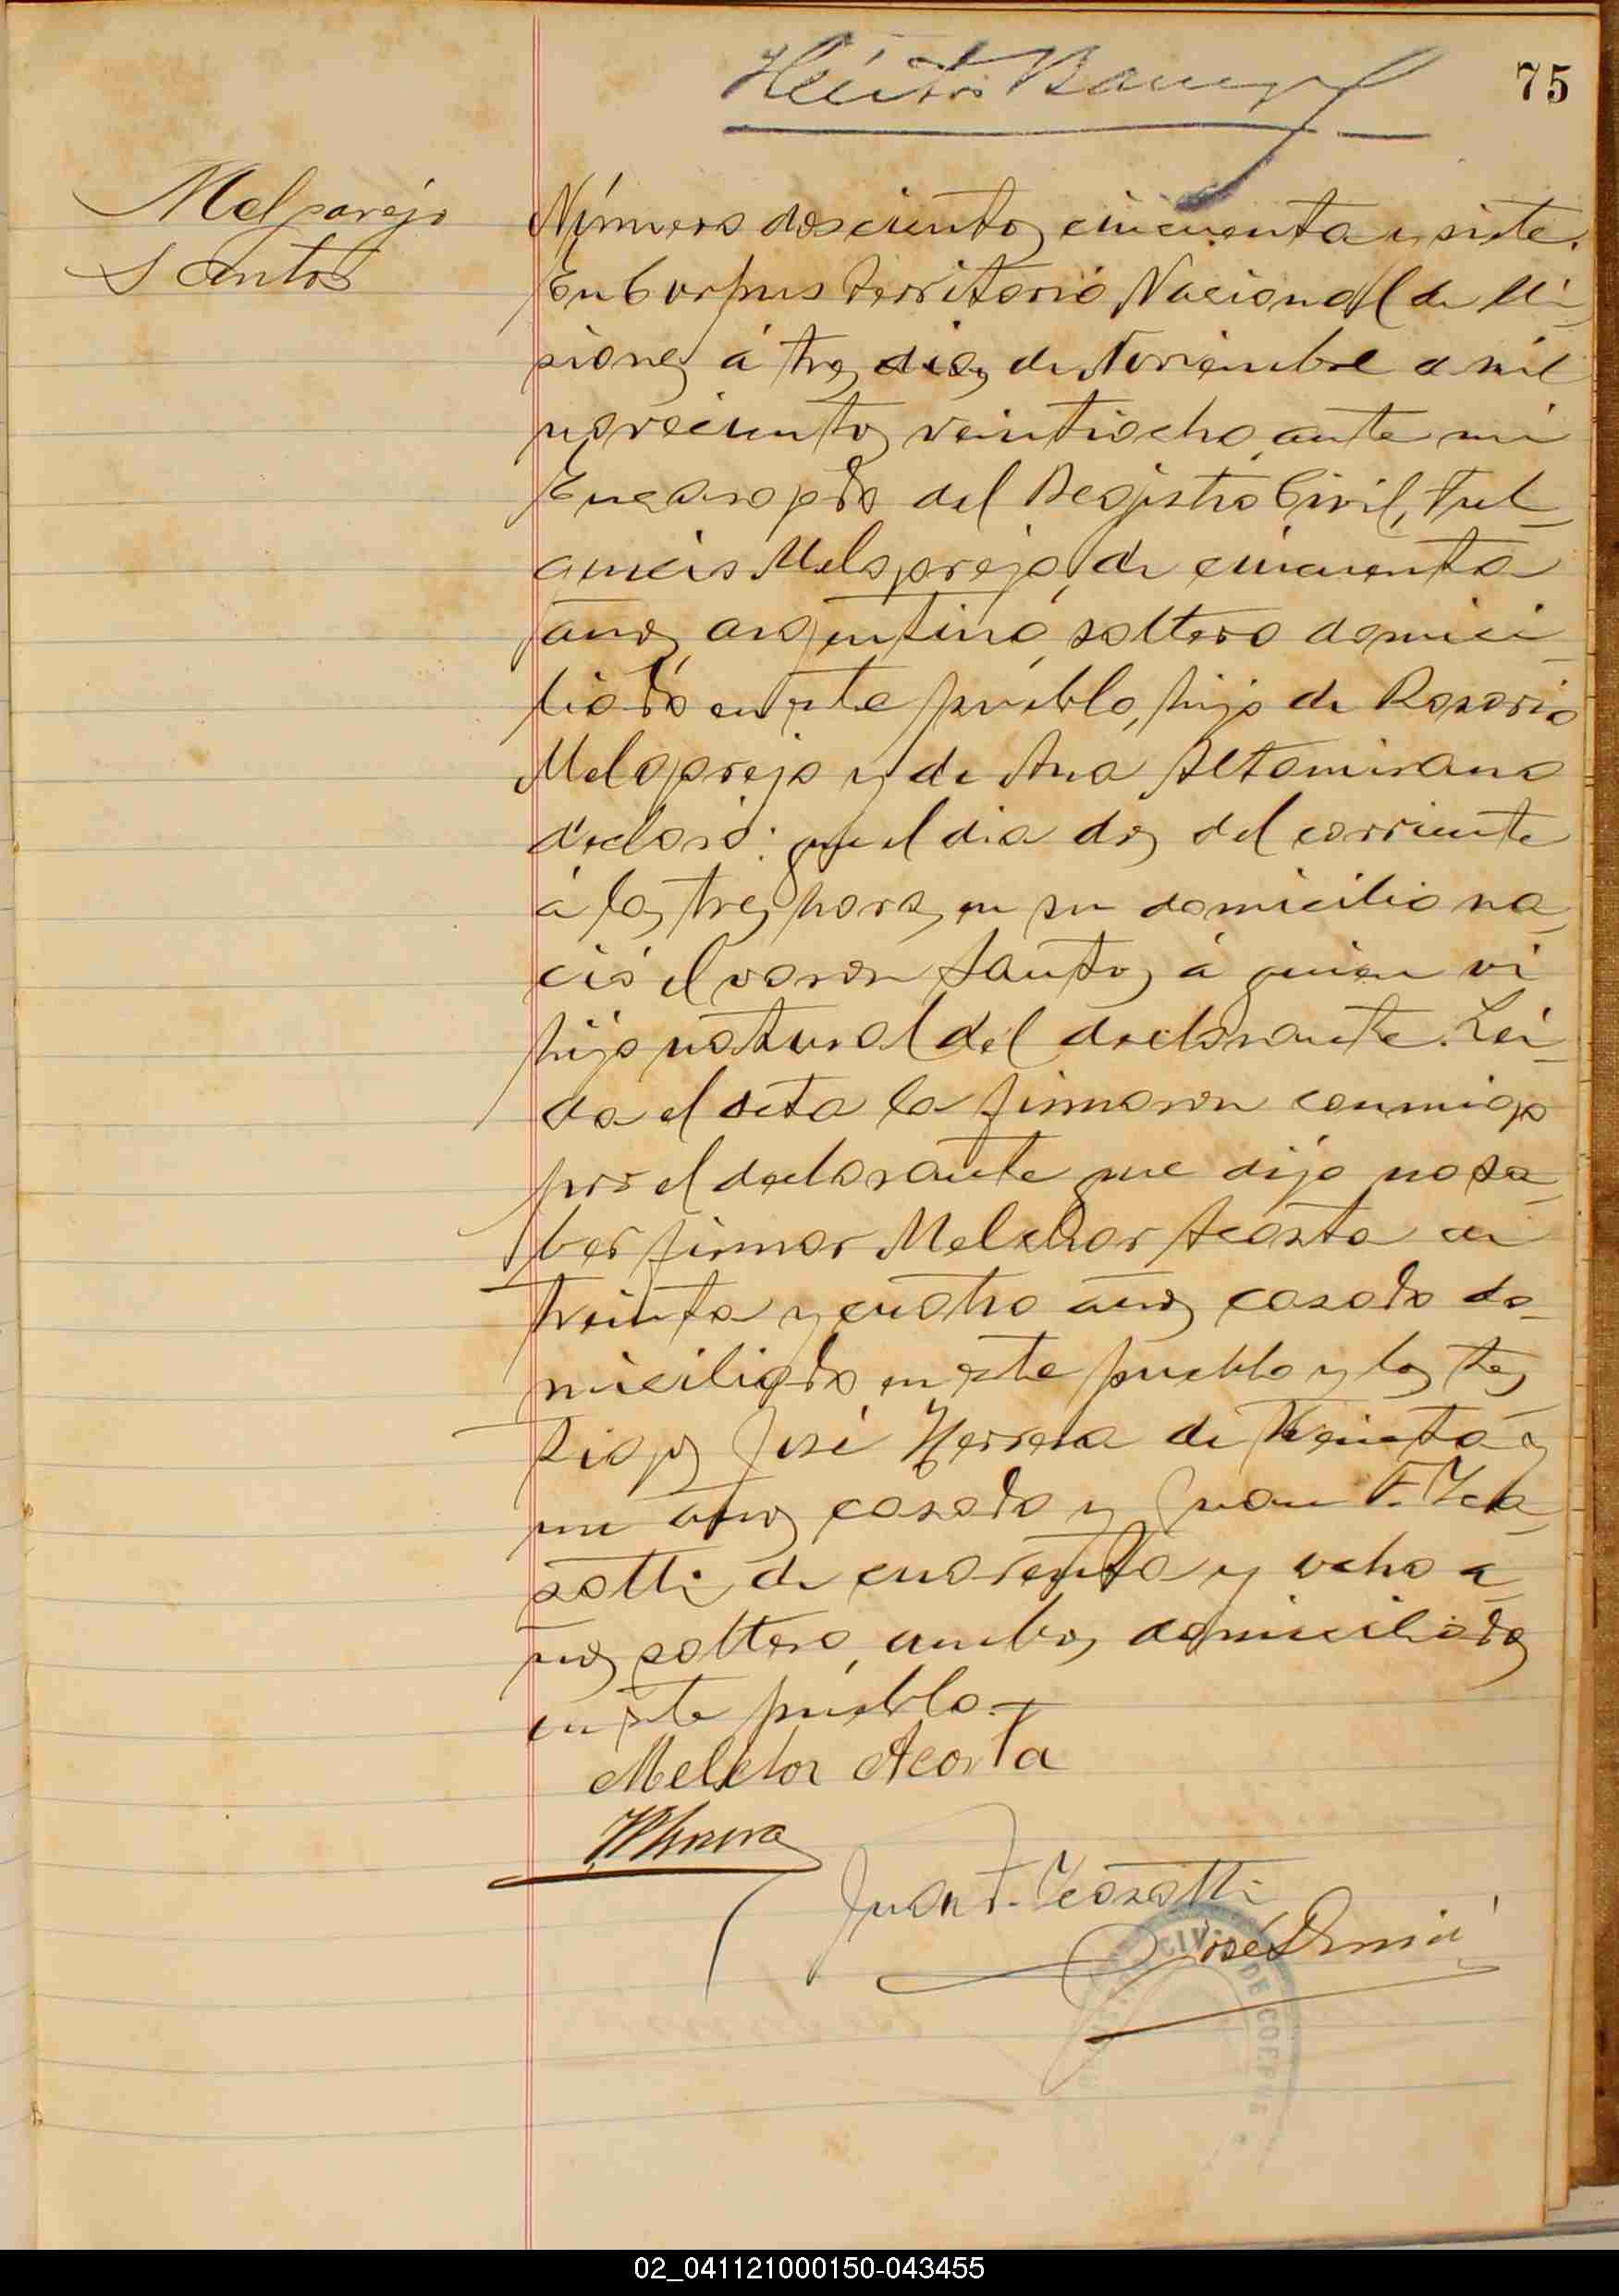 75
Melgarejo
Santos
Número doscientos cincuenta y siete.
En Corpus Territorio Nacional de Mi-
siones á tres dias de Noviembre de mil
novecientos veintiocho, ante mi
Encargado del Registro Civil, Ful-
gencio Melgarejo, de cincuenta
años, argentino, soltero domici-
liado en este pueblo, hijo de Rosario
Melgarejo y de Ana Altamirano
declaró: que el dia dos del corriente
á las tres horas, en su domicilio na-
ció el varon Santos á quien vi
hijo natural del declarante. Lei-
da el acta la firmaron conmigo
por el declarante que dijo no sa-
ber firmar Melchor Acosta de
treinta y cuatro años casado do-
miciliado en este pueblo y los tes-
tigos José Herrera de treinta y
un años casado y Juan F.
de cuarenta y ocho a-
ños soltero, ambos domiciliados
en este pueblo.-
Melchor Acosta
JHerrera
Juan F.
José
CIVIL DE CORPUS
02_041121000150-043455